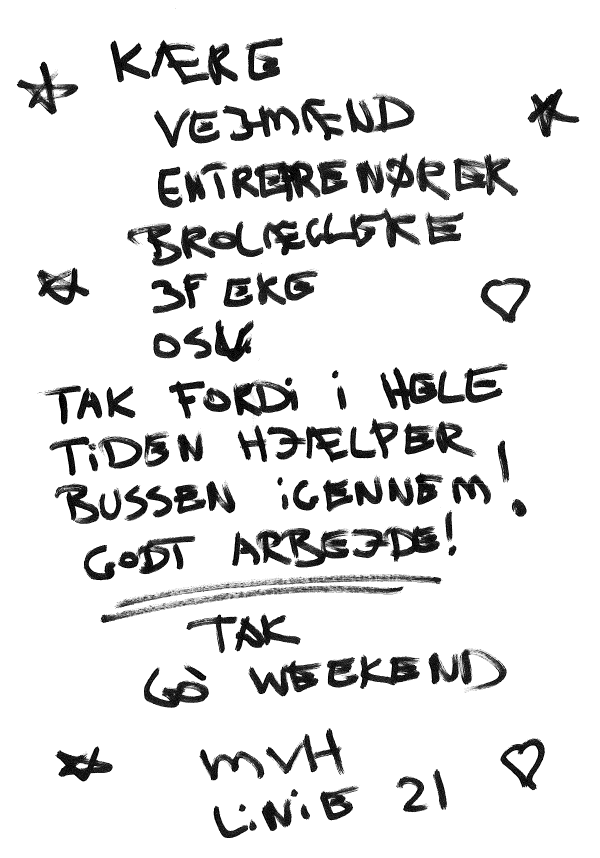 KÆRE
VEJMÆND
ENTREPRENØRER
BROLÆGGERE
JF EKE
OSV
TAK FORDI I HELE
TIDEN HJÆLPER
BUSSEN IGENNEM!
GODT ARBEJDE!
TAK
GO' WEEKEND
MVH
LINIE 21